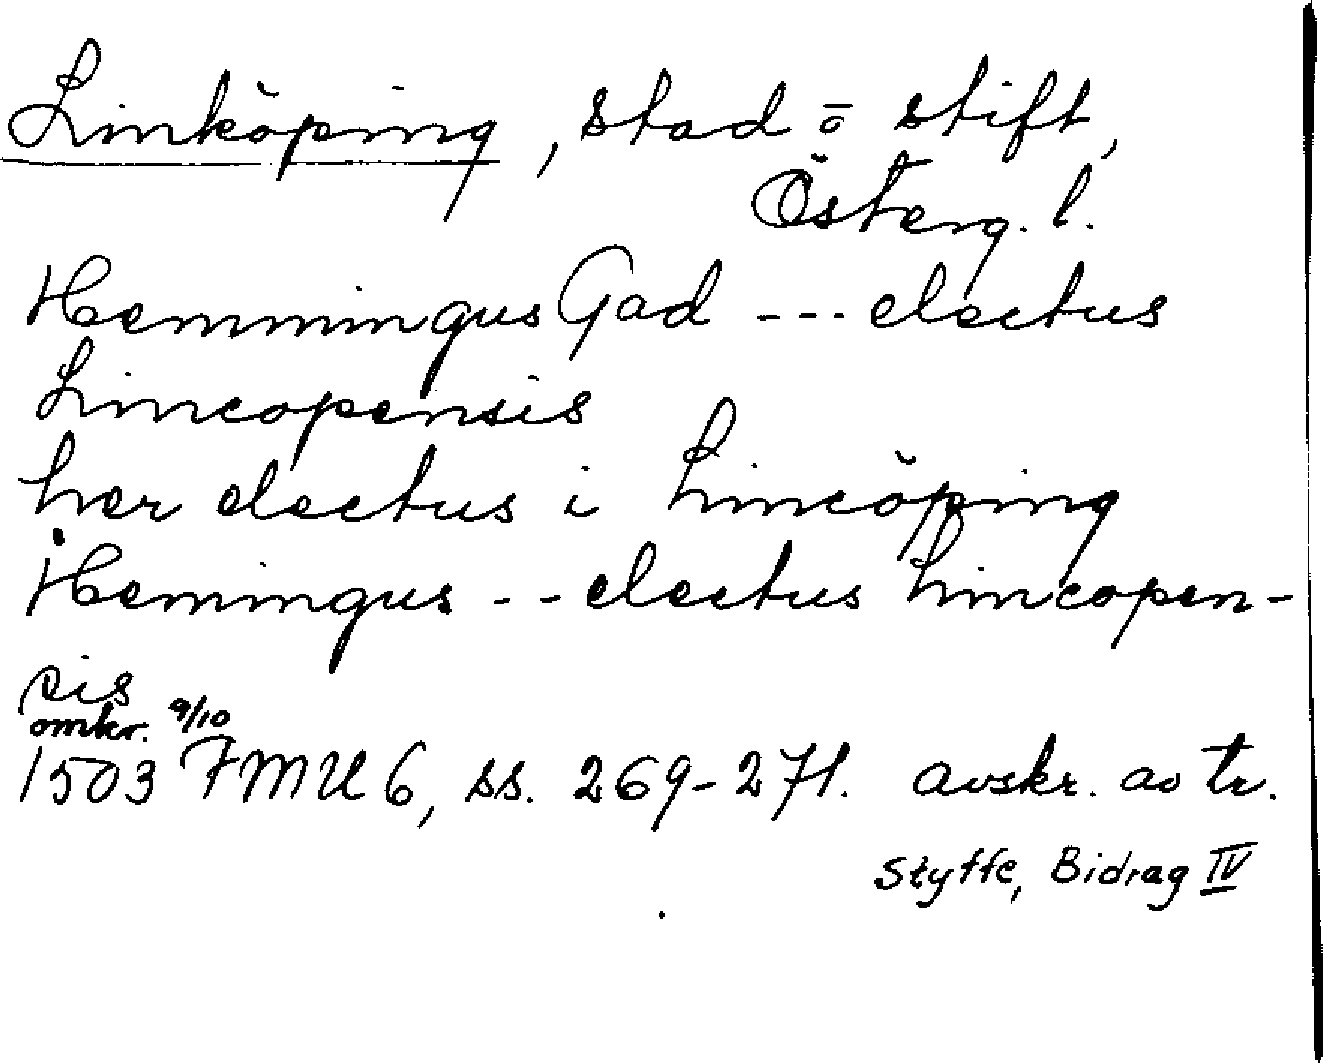 Linköping, stad ō stift,
Österg. l.
Hemmingus Gad --- electus
Lincopensis
her electus i Lincöping
Hemingus -- electus Lincopen-
sis
omkr. 9/10
1503 FMU 6, ss. 269-271. avskr. av tr.
Styffe, Bidrag IV